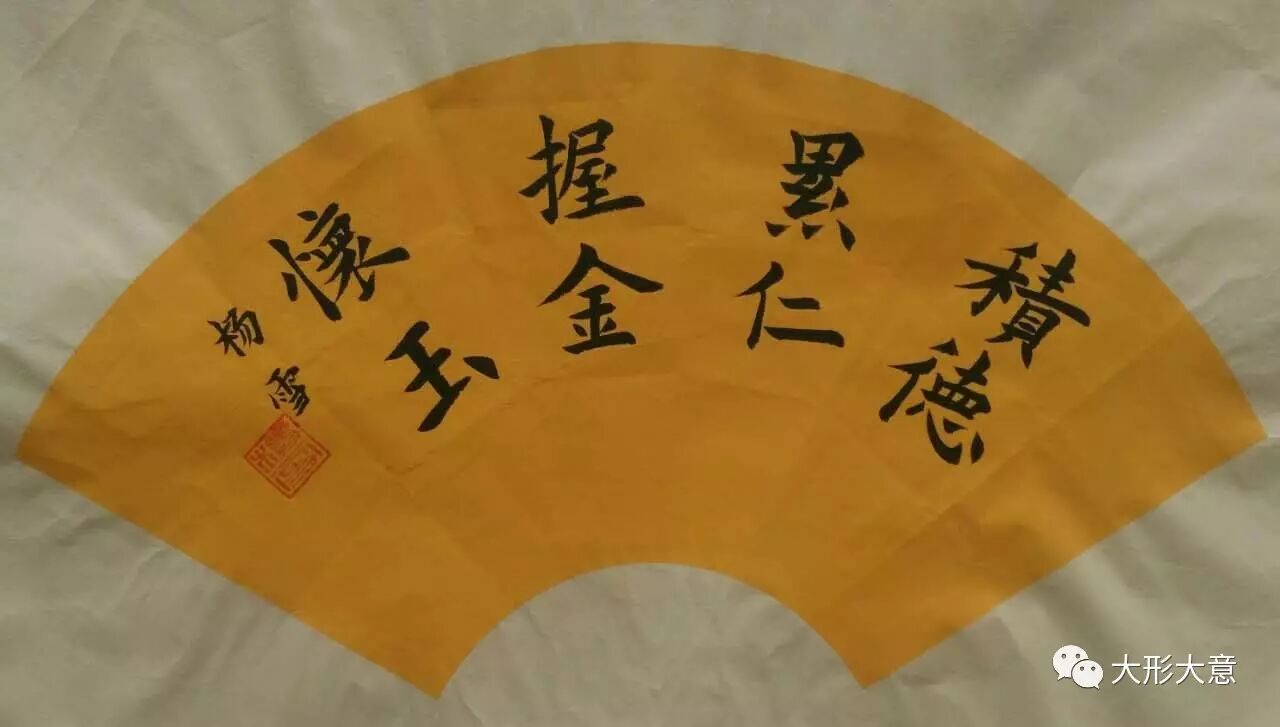 積德
累仁
握金
懷玉
杨雪
大形大意